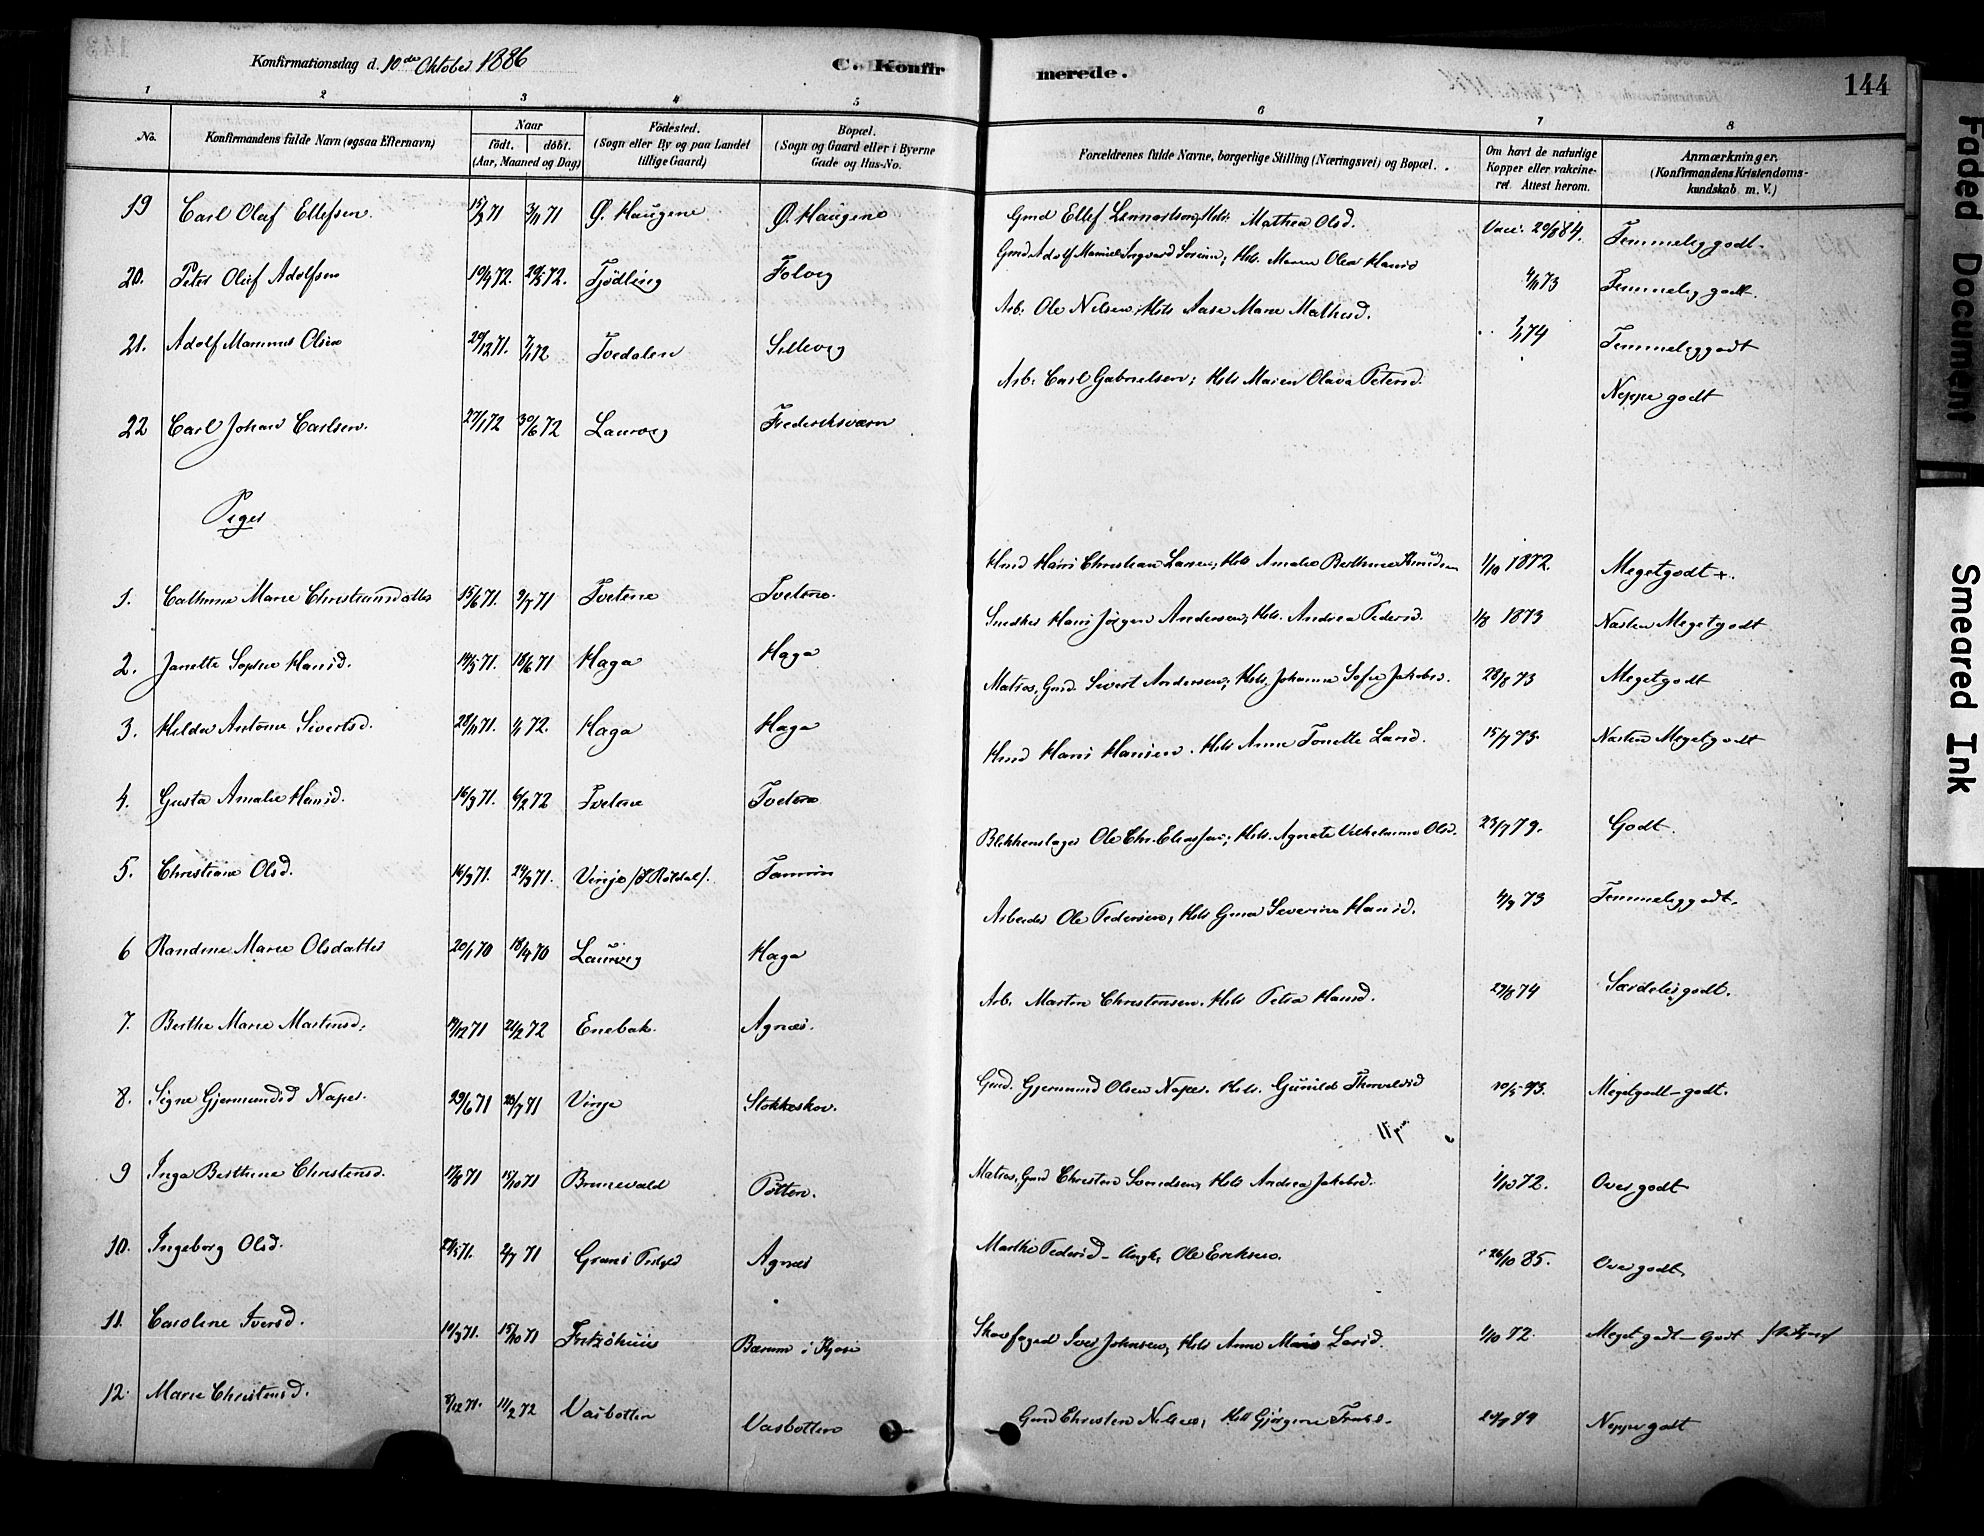 Konfirmationsdag d. 10de Oktober 1886
C. Konfirmerede.
144
1 2 3 4 5 6 7 8
No.
Konfirmandens fulde Navn (ogsaa Efternavn)
Naar
født. døbt.
(Aar, Maaned og Dag)
Fødested.
(Sogn eller By og paa Landet
tillige Gaard)
Bopæl.
(Sogn og Gaard eller i Byerne
Gade og Hus-No.
Forældrenes fulde Navne, borgerlige Stilling (Næringsvei) og Bopæl.
Om havt de naturlige
Kopper eller vakcine-
ret. Attest herom.
Anmærkninger.
(Konfirmandens Kristendoms-
kundskab m. V.)
19 Carl Oluf Ellefsen. 15/2 71 3/11 71 Ø. Haugene Ø. Haugene Gmd Ellef Lennartsen, Mathea Olsd. Vacc. 29/8 84. Temmelig godt.
20. Peter Oluf Adolfsen 19/1 72. 29/3 72. Tjødling Folvig Gmd Adolf Maren Olea Hansd 4/11 73 Temmelig godt.
21. Adolf Marinius Olsen 29/12 71. 7/1 72 Tvedalen Sillevig Arb. Ole Nilsen, Hels Aase Marie Mathisd. 74 Temmelig godt
22 Carl Johan Carlsen. 27/1 72 30/6 72 Laurvig Frederiksværn Arb. Carl Gabrielsen; Hels Maren Olava Petersd. Neppe godt
Piger
1. Cathrine Marie Christiansdatter 15/6 71. 9/7 71 Tvetene Tvetene. Hmd Hans Christian Larsen, Hels Amalie Berthine Knudsen 1/10 1872. Megetgodt +.
2. Janette Sophie Hansd. 14/5 71. 18/6 71 Haga Haga Snedker Hans Jørgen Andersen, Hels. Andrea Pedersd. 1/8 1873 Næsten Megetgodt
3. Hilda Antonie Sivertsd. 28/11 71. 1/1 72. Haga Haga Matros, Gmd. Sivert Andersen; Hels. Johanne Sofie Jakobsd. 28/8 73 Megetgodt
4. Gusta Amalie Hansd. 16/9 71. 6/2 72 Tvetene Tvetene Hmd Hans Hansen. Hels Anne Tonette Larsd. 15/7 73. Næsten Megetgodt
5. Christiane Olsd. 16/3 71. 24/3 71. Vinje Tanum Blikkenslager Ole Chr. Eliassen; Hels. Agnete Vilhelmine Olsd. 23/7 79. Godt.
6 Randine Marie Olsdatter 20/1 70 18/4 70 Laurvig Haga Arbeider Ole Pedersen, Hels Severine Hansd. 4/9 73 Temmelig godt.
7. Berthe Marie Martinsd. 19/12 71 21/2 72 Enebak. Agnæs. Arb. Martin Christensen. Hels Petra Hansd. 29/8 74 Særdeles godt.
8. Signe Gjermundsd Naper. 29/6 71 23/7 71 Vinje Stokkeskov. Gmd. Gjermund Olsen Naper. Hels. Gunild Thorvaldsd 10/5 73. Megetgodt-godt.
9 Inga Berthine Christensd. 17/8 71 15/10 71 Brunevald Potten. Matros, Gmd Christen Svendsen, Hels Andrea Jakobsd. 1/10 72. Over godt
10. Ingeborg Olsd. 27/5 71. 2/7 71 Agnæs Marthe Pedersd - Ungk, Ole Eriksen. 26/10 85. Over godt
11. Caroline Iversd. 10/9 71. 15/10 71 Fritzøhuus Barum i Kjose Skovfoged Iver Johnsen, Hels Anne Marie Larsd. 1/10 72. Meget godt-Godt
12. Marie Christensd. 8/12 71. 11/2 72 Vasbotten Vasbotten Gmd Christen Nilsen; Hels Gjørgine 29/9 79 Neppe godt
Faded Document
Smeared Ink